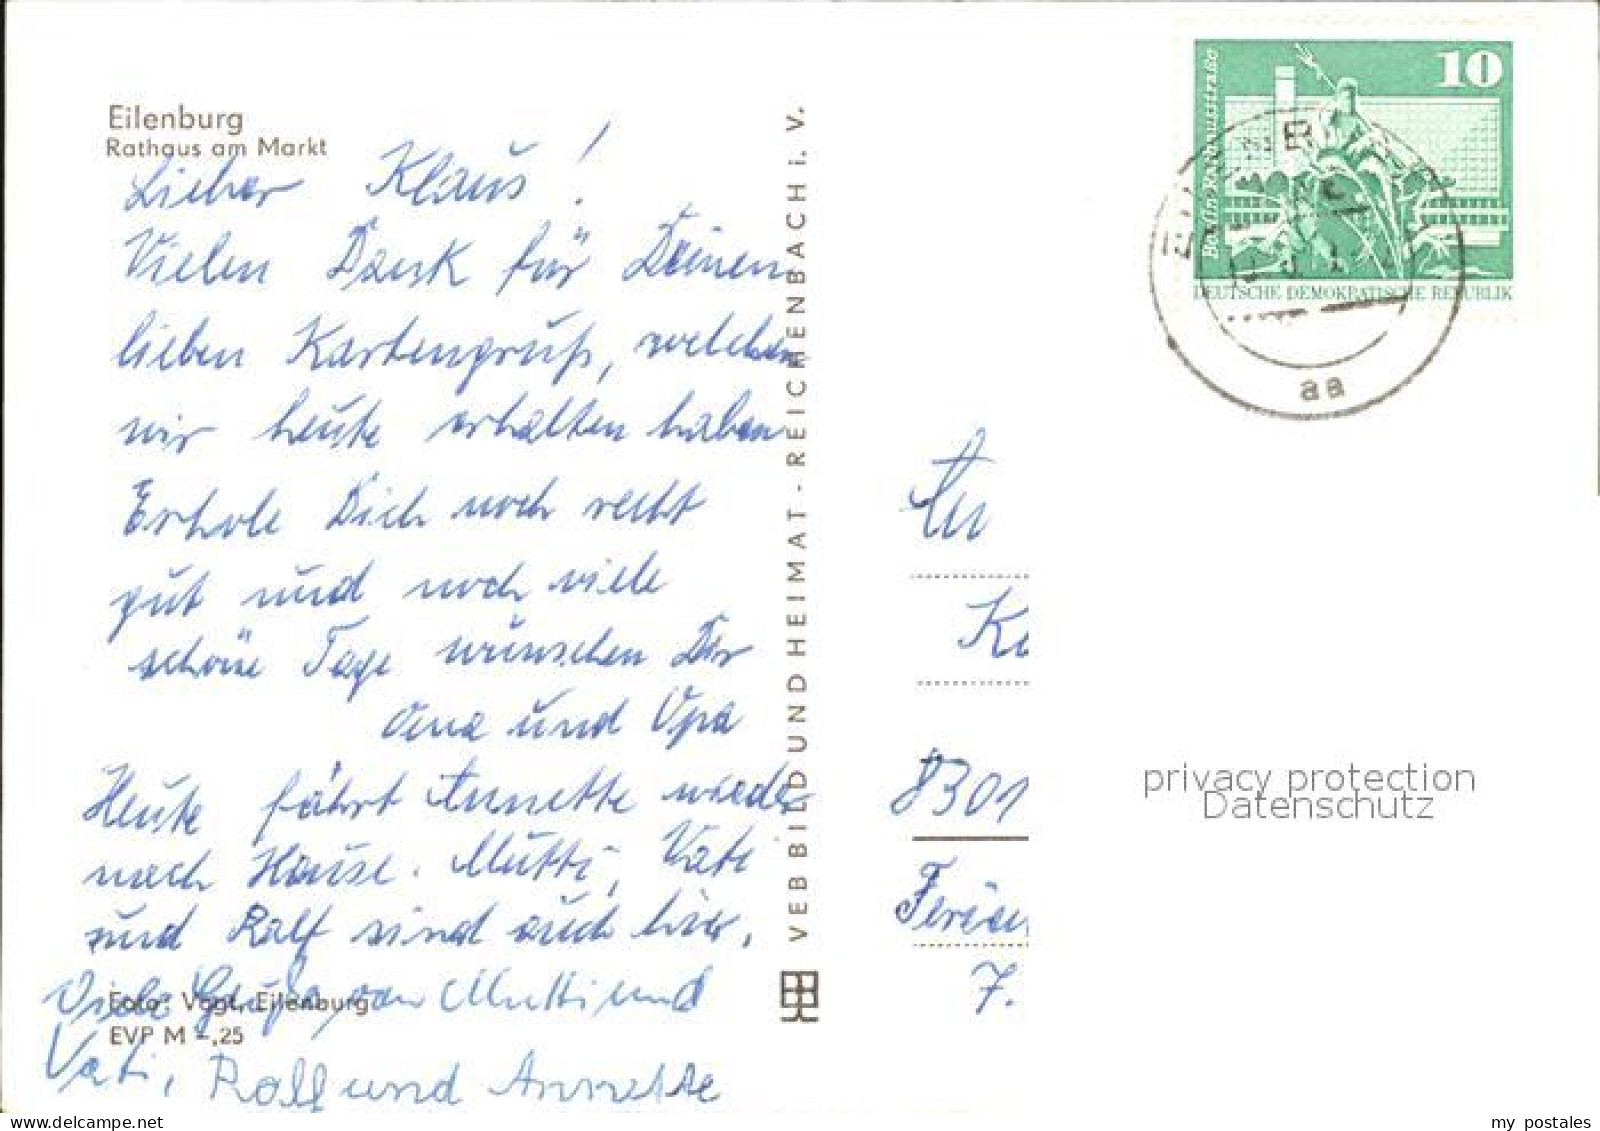 Eilenburg
Rathaus am Markt
Lieber Klaus!
Vielen Dank für Deinen
lieben Kartengruß, welchen
wir heute erhalten haben
Erhole Dich noch recht
gut und noch viele
schöne Tage wünschen Dir
Oma und Opa
Heute fährt Annette wieder
nach Hause. Mutti, Vati
und Ralf sind auch hier.
Viele Grüße von Mutti und
Vati, Ralf und Annette
Foto: Vogt, Eilenburg
EVP M -,25
VEB BILD UND HEIMAT - REICHENBACH i. V.
10
Berlin-Rathausstraße
DEUTSCHE DEMOKRATISCHE REPUBLIK
aa
An
8301
7.
privacy protection
Datenschutz
my postales